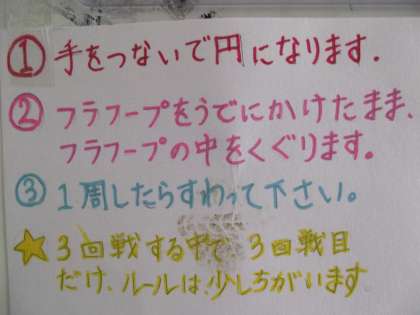 ① 手をつないで円になります.
② フラフープをうでにかけたまま、
フラフープの中をくぐります。
③ 1周したらすわって下さい。
★ 3回戦する中で 3回戦目
だけ、ルールは、少しちがいます